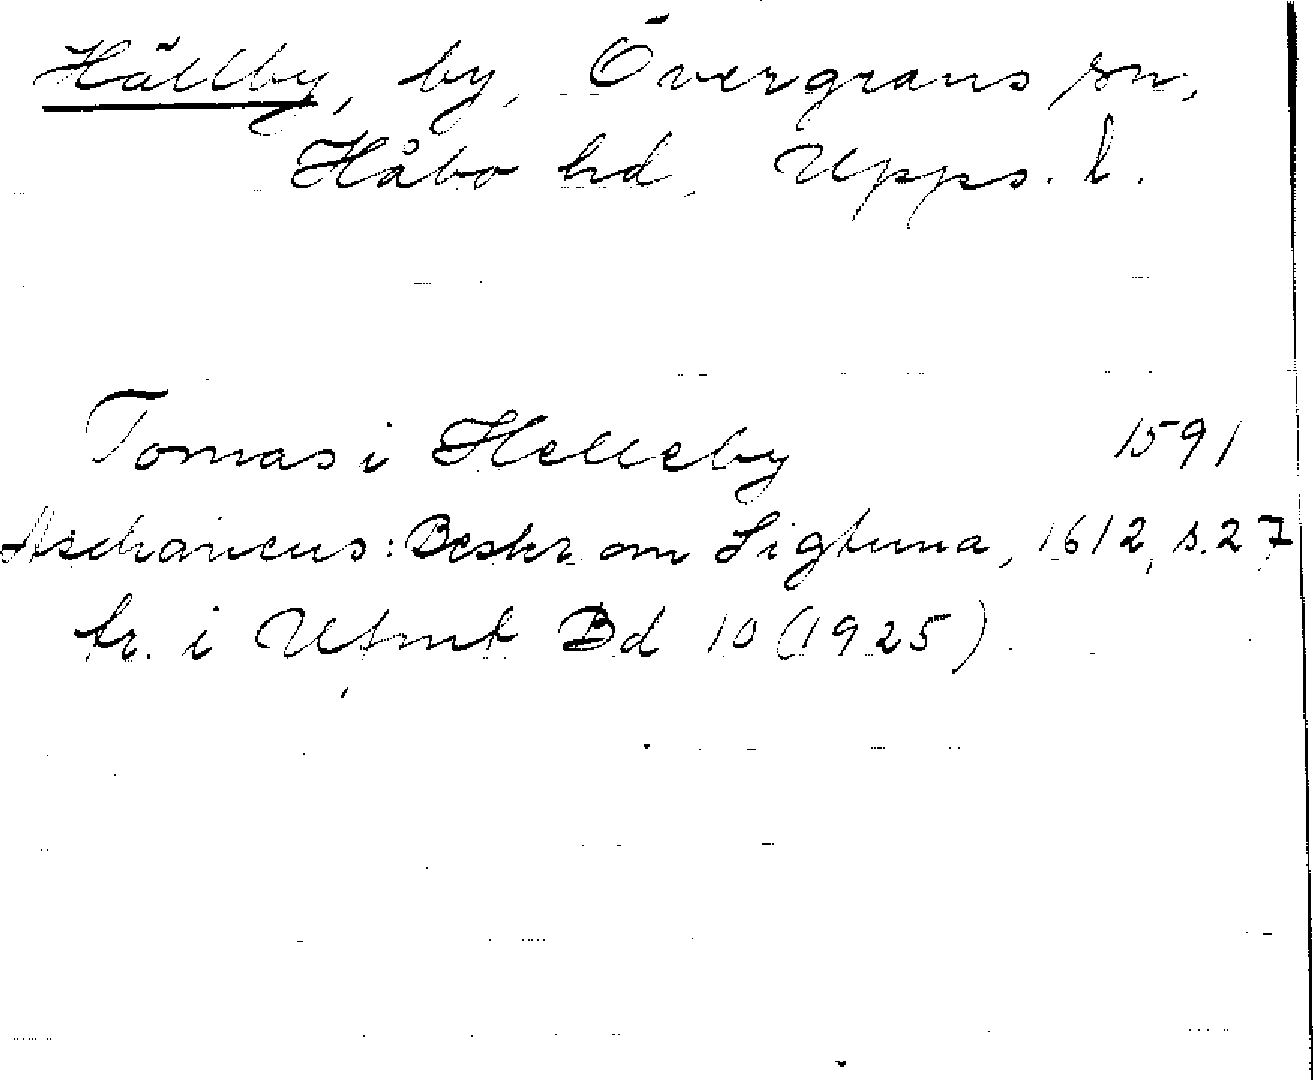 Hällby, by, Övergrans sn,
Håbo hd, Upps. l.
Tomas i Helleby 1591
Aschaneus: Beskr. om Sigtuna, 1612, s. 27
tr. i Ufmt Bd 10 (1925).